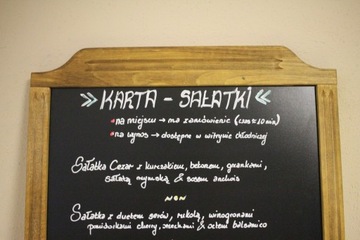 » KARTA - SAŁATKI «
• na miejscu → na zamówienie (czas ≈ 10 min)
• na wynos → dostępne w witrynie chłodniczej
Sałatka Cezar z kurczakiem, bekonem, grzankami,
sałatą rzymską & sosem anchois
Sałatka z duetem serów, rukolą, winogronami
pomidorkami cherry, orzechami & octem balsamico